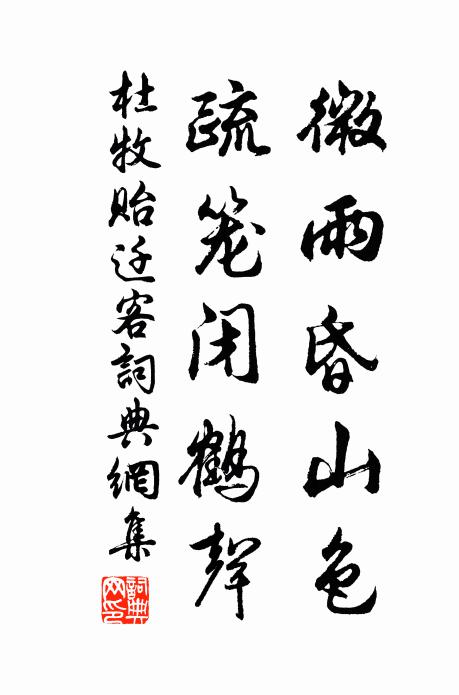 微雨昏山色
疏笼闭鹤声
杜牧贻迁客詞典網集
詞典网印